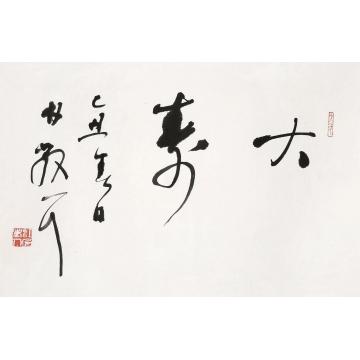 大寿
乙丑春日
林散耳